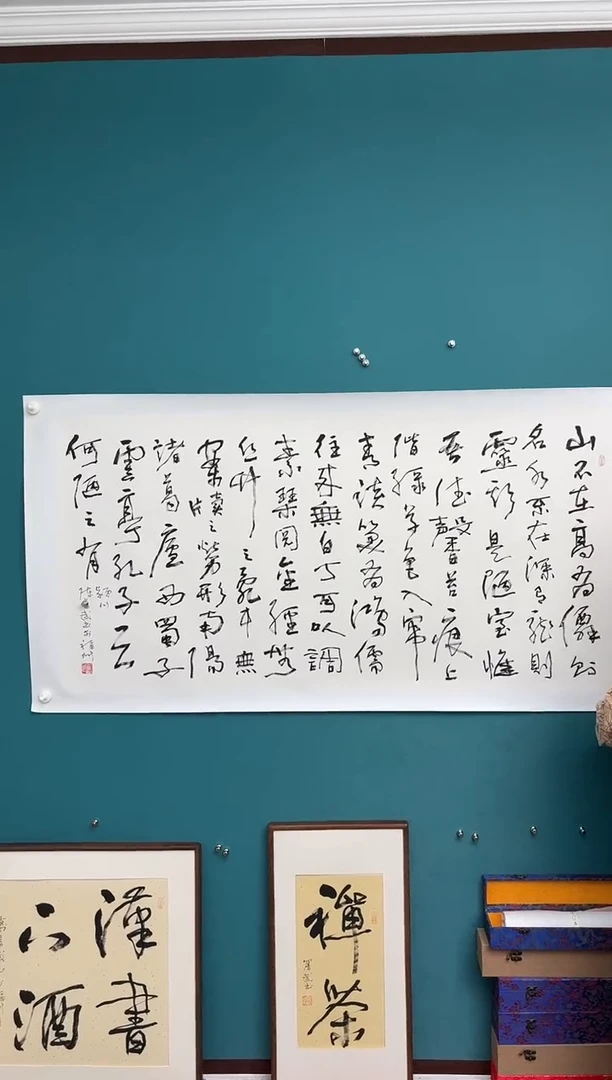 山不在高有僊則
名水不在深有龍則
靈斯是陋室惟
吾德馨苔痕上
階緑草色入簾
青談笑有鴻儒
往來無白丁可以調
素琴閲金經無
丝竹之亂耳無
案牘之勞形南陽
諸葛廬西蜀子
雲亭孔子云
何陋之有
潁川
漢書
下酒
禪茶